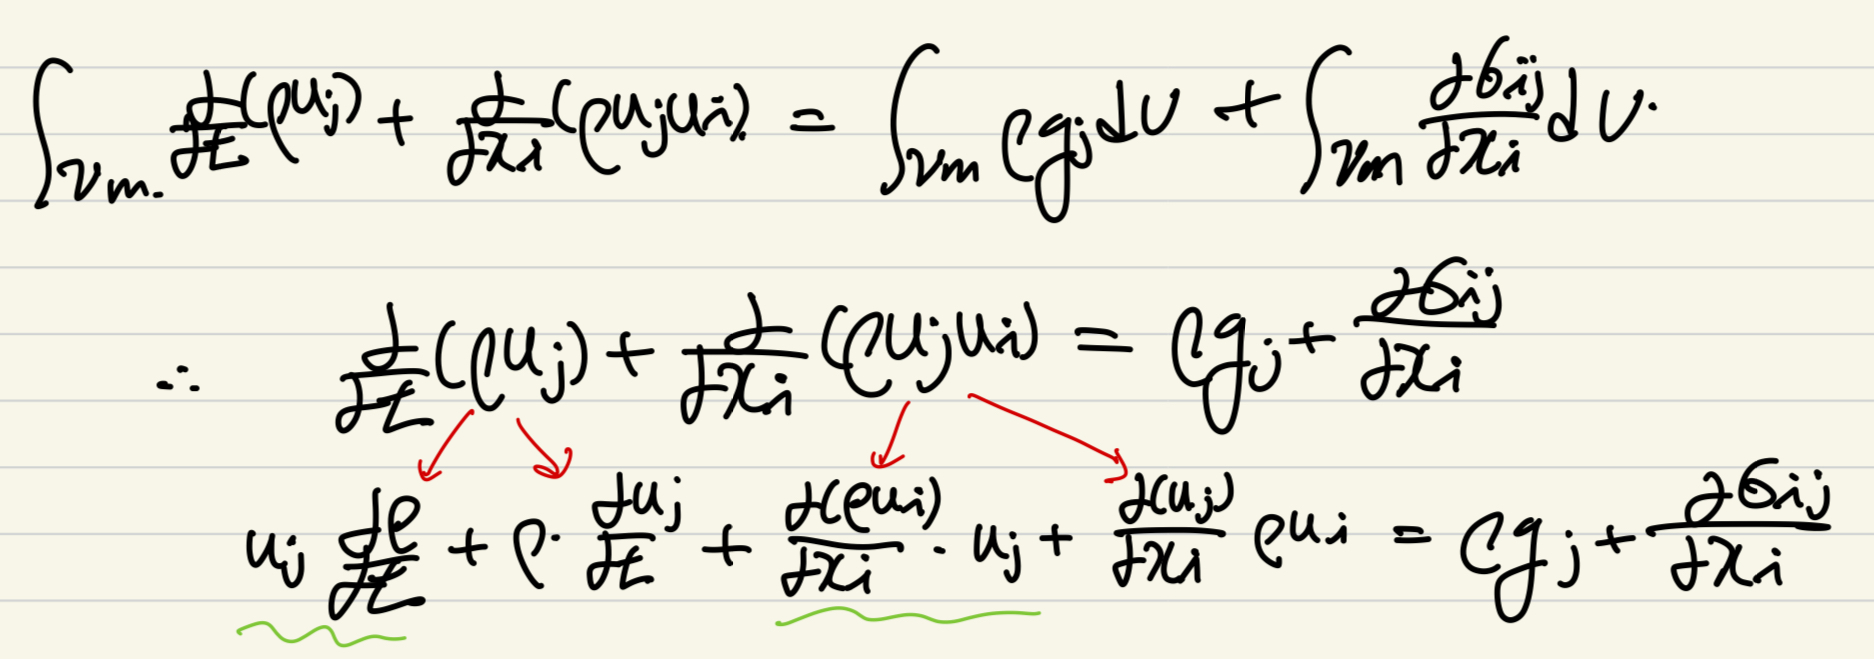 ∫_{Vm.} ∂/∂t(ρu_j) + ∂/∂x_i(ρu_ju_i) = ∫_{Vm} ρg_j dV + ∫_{Vm} ∂σ_{ij}/∂x_i dV.
∴ ∂/∂t(ρu_j) + ∂/∂x_i(ρu_ju_i) = ρg_j + ∂σ_{ij}/∂x_i
u_j ∂ρ/∂t + ρ·∂u_j/∂t + ∂(ρu_i)/∂x_i · u_j + ∂(u_j)/∂x_i ρu_i = ρg_j + ∂σ_{ij}/∂x_i